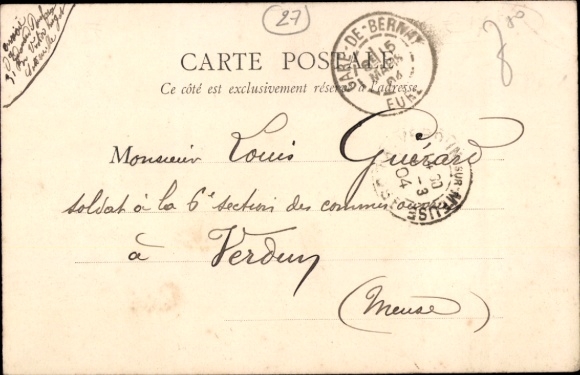 27
GARE-DE-BERNAY
EURE
CARTE POSTALE
Ce côté est exclusivement réservé à l'adresse
Monsieur Louis Guérard
soldat à la 6e section des commis
à Verdun
(Meuse)
VERDUN-SUR-MEUSE
-3
04